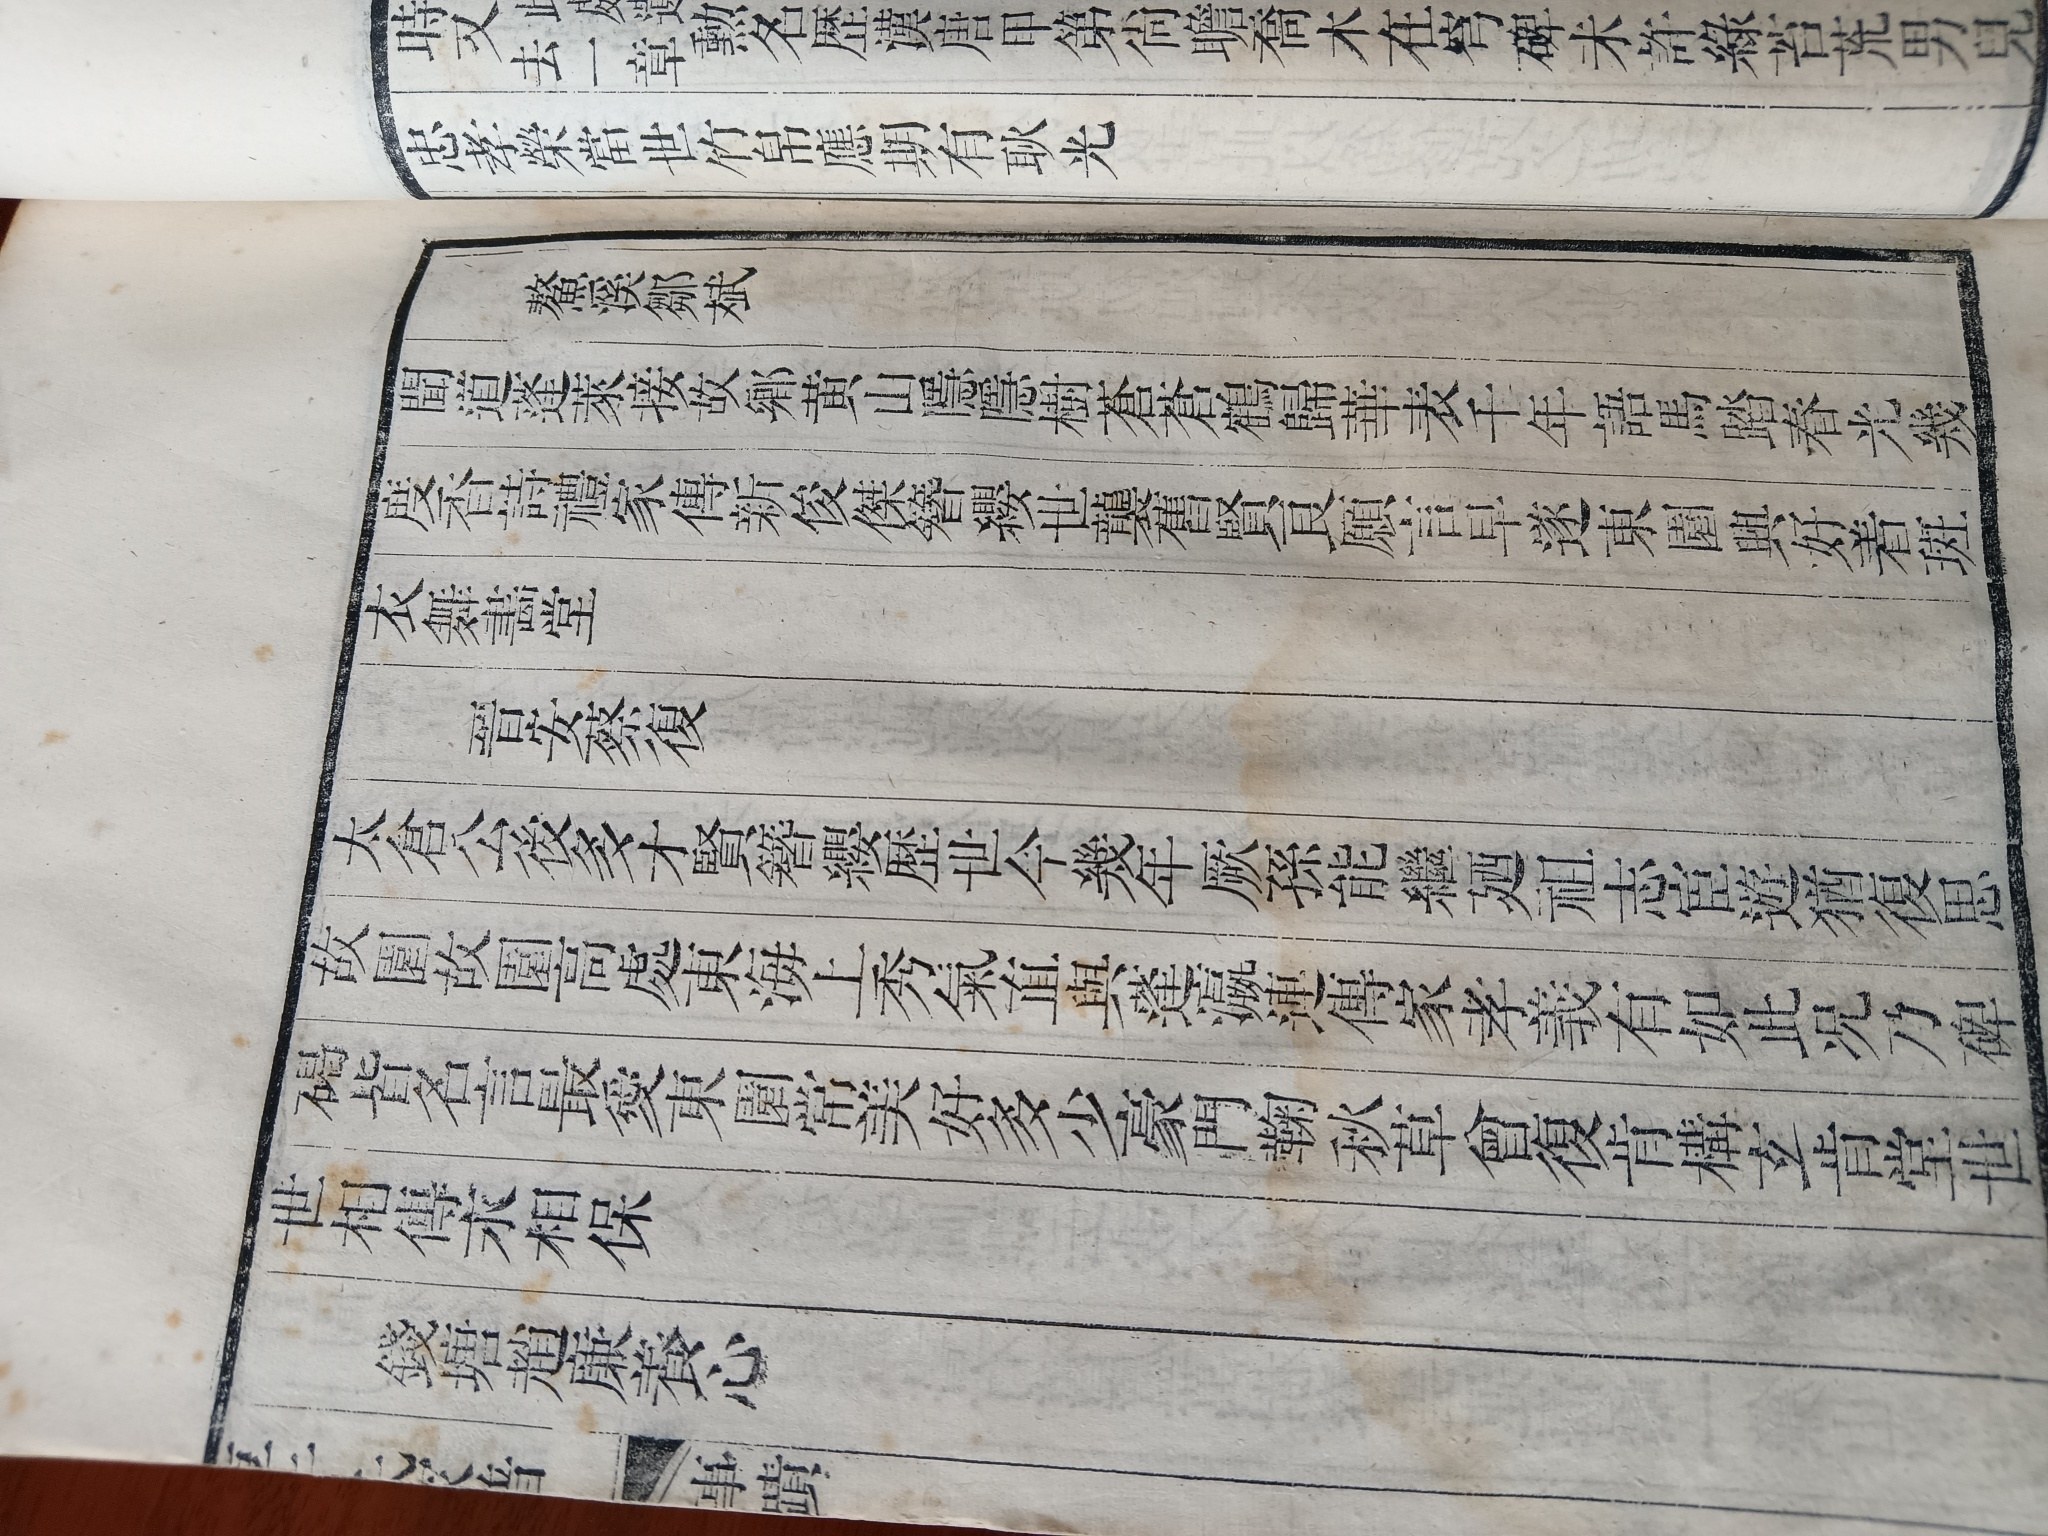 時又此處遺去一章勲名歷漢唐甲第尚瞻喬木在穹碑未許綠苔荒男兒
忠孝榮當世竹帛應期有耿光
鰲溪鄒斌
聞道蓬萊接故鄉黃山隱隱樹蒼蒼鶴歸華表千年語馬踏春光幾
度香詩禮家傳新俊傑簪纓世襲舊賢良願言早遂東園興好着斑
衣舞晝堂
晉安蔡復
太倉公後多才賢簪纓歷世今幾年厥孫能繼廼祖志宦遊猶復思
故園故園高處東海上秀氣直與蓬瀛連傳家孝義有如此況乃碑
碣皆名言最愛東園常美好多少豪門鞠秋草會復肯構立肯堂世
世相傳永相保
錢塘趙廉養心
事蹟